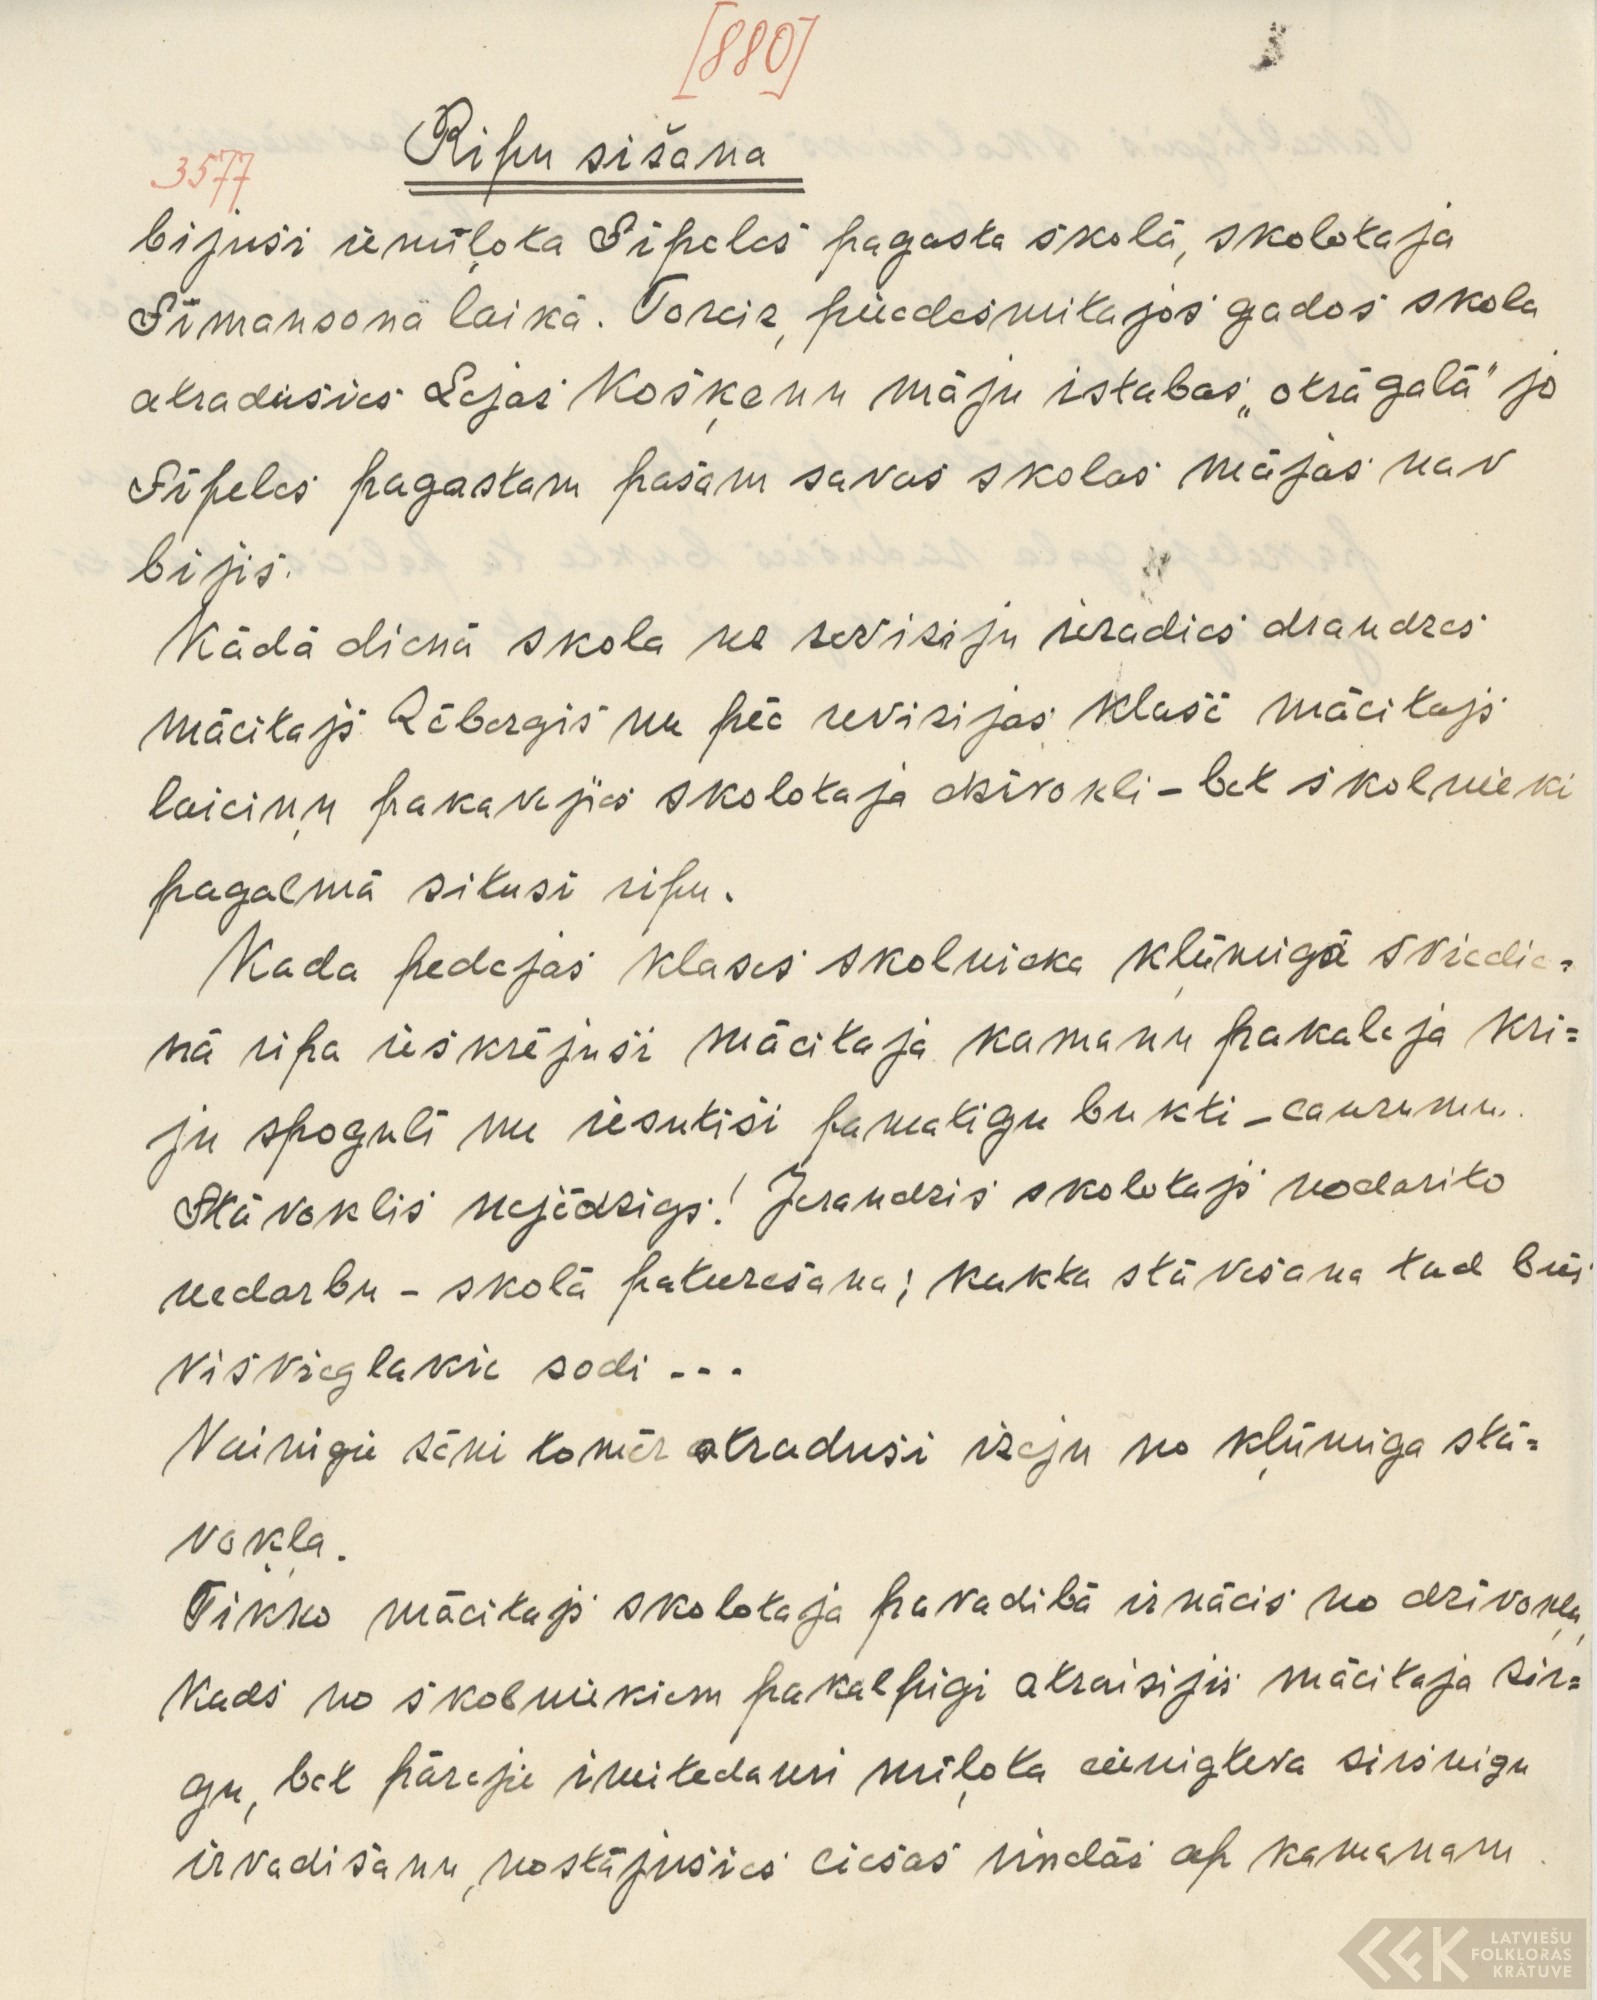 [880]
3577
Ripu sišana
bijusi iemīļota Sīpeles pagasta skolā, skolotaja
Sīmansona laikā. Toreiz, piecdesmitajos gados skola
atradusies Lejas Košķenu māju istabas „otrāgalā" jo
Sīpeles pagastam pašam savas skolas mājas nav
bijis.
Kādā dienā skola uz reviziju ieradies draudzes
mācitajs Rēbergis un pēc revizijas klasē mācitajs
laiciņu pakavejies skolotaja dzivokli – bet skolnieki
pagalmā situši ripu.
Kada pedejas klases skolnieka kļūmigā sviedie=
nā ripa ieskrējusi mācitaja kamanu pakaleja kri=
ju spoguli un iesutisi pamatigu bukti – caurumu.
Stāvoklis nejēdzigs! Ieraudzis skolotajs nodarito
nedarbu – skolā paturešana; kakta stāvešana tad būs
visvieglakie sodi ---
Vainigie zēni tomēr atradusi izeju no kļūmiga stā=
vokļa.
Tikko mācitajs skolotaja pavadibā iznācis no dzivokļa,
kads no skolniekiem pakalpigi atraisijis mācitaja zir=
gu, bet pārejie imitedami mīļota cienigteva sirsnigu
izvadišanu, nostājušies ciešas rindās ap kamanam
LATVIEŠU
FOLKLORAS
KRĀTUVE